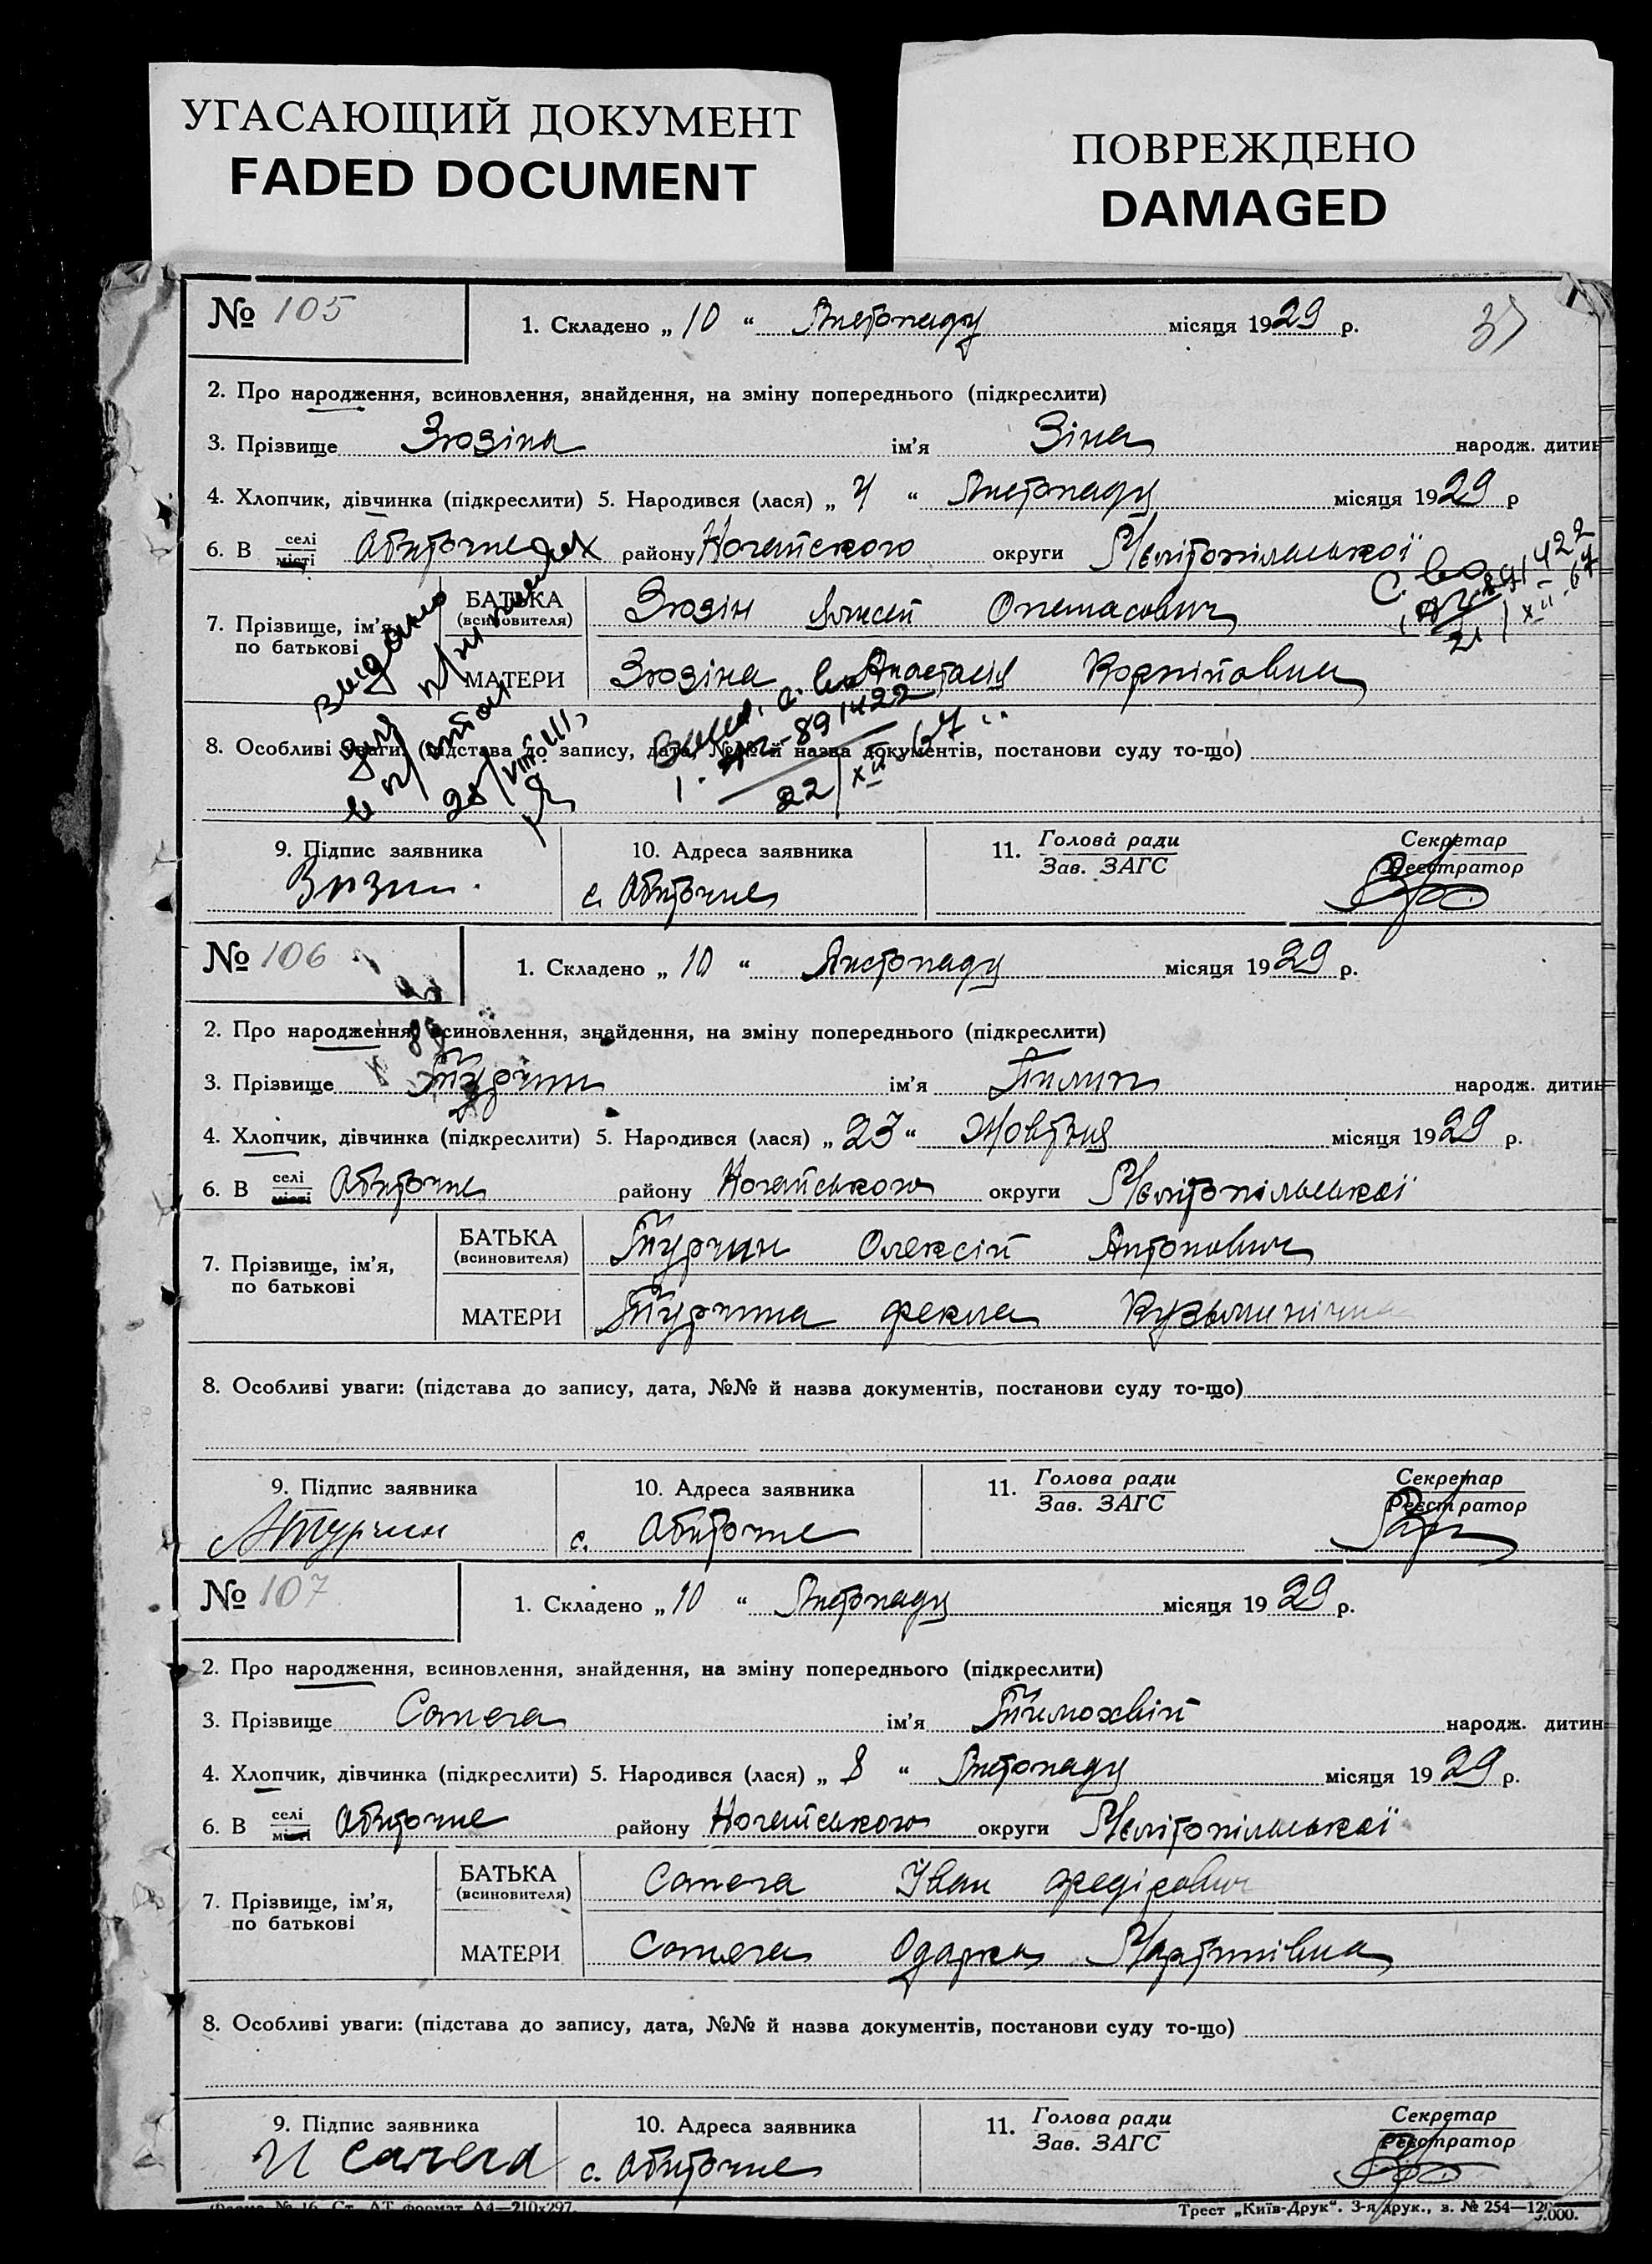 УГАСАЮЩИЙ ДОКУМЕНТ
FADED DOCUMENT
ПОВРЕЖДЕНО
DAMAGED
№ 105
1. Складено „ 10 “ Листопаду місяця 1929 р.
37
2. Про народження, всиновлення, знайдення, на зміну попереднього (підкреслити)
3. Прізвище Зюзіна ім’я Зіна народж. дитин
4. Хлопчик, дівчинка (підкреслити) 5. Народився (лася) „ 4 “ Листопаду місяця 1929 р
6. В селі місті Обиточне району Ногайского округи Мелітопільської
7. Прізвище, ім’я, по батькові
БАТЬКА (всиновителя) Зюзін Олексей
МАТЕРИ Зюзіна Анастасія Корніївна
видано
28/VIII
891422
22/XII-67
891422
21/XII-67
8. Особливі уваги: (підстава до запису, дата, №№ й назва документів, постанови суду то-що)
9. Підпис заявника
10. Адреса заявника
11. Голова ради
Зав. ЗАГС
Секретар
Реєстратор
Зюзин
с. Обиточне
№ 106
1. Складено „ 10 “ Листопаду місяця 1929 р.
2. Про народження, всиновлення, знайдення, на зміну попереднього (підкреслити)
3. Прізвище Турчин ім’я Пилип народж. дитин
4. Хлопчик, дівчинка (підкреслити) 5. Народився (лася) „ 23 “ Жовтня місяця 1929 р.
6. В селі місті Обиточне району Ногайського округи Мелітопільської
7. Прізвище, ім’я, по батькові
БАТЬКА (всиновителя) Турчин Олексій Антонович
МАТЕРИ Турчина Фекла Кузьминічна
8. Особливі уваги: (підстава до запису, дата, №№ й назва документів, постанови суду то-що)
9. Підпис заявника
10. Адреса заявника
11. Голова ради
Зав. ЗАГС
Секретар
Реєстратор
АТурчин
с. Обиточне
№ 107
1. Складено „ 10 “ Листопаду місяця 1929 р.
2. Про народження, всиновлення, знайдення, на зміну попереднього (підкреслити)
3. Прізвище Сапега ім’я Тимохвій народж. дитин
4. Хлопчик, дівчинка (підкреслити) 5. Народився (лася) „ 8 “ Листопаду місяця 1929 р.
6. В селі місті Обиточне району Ногайського округи Мелітопільської
7. Прізвище, ім’я, по батькові
БАТЬКА (всиновителя) Сапега Іван Федірович
МАТЕРИ Сапега Одарка Мартинівна
8. Особливі уваги: (підстава до запису, дата, №№ й назва документів, постанови суду то-що)
9. Підпис заявника
10. Адреса заявника
11. Голова ради
Зав. ЗАГС
Секретар
Реєстратор
И Сапега
с. Обиточне
Форма № 16. Ст. АТ формат А4—210х297.
Трест „Київ-Друк“. 3-я друк., з. № 254—12